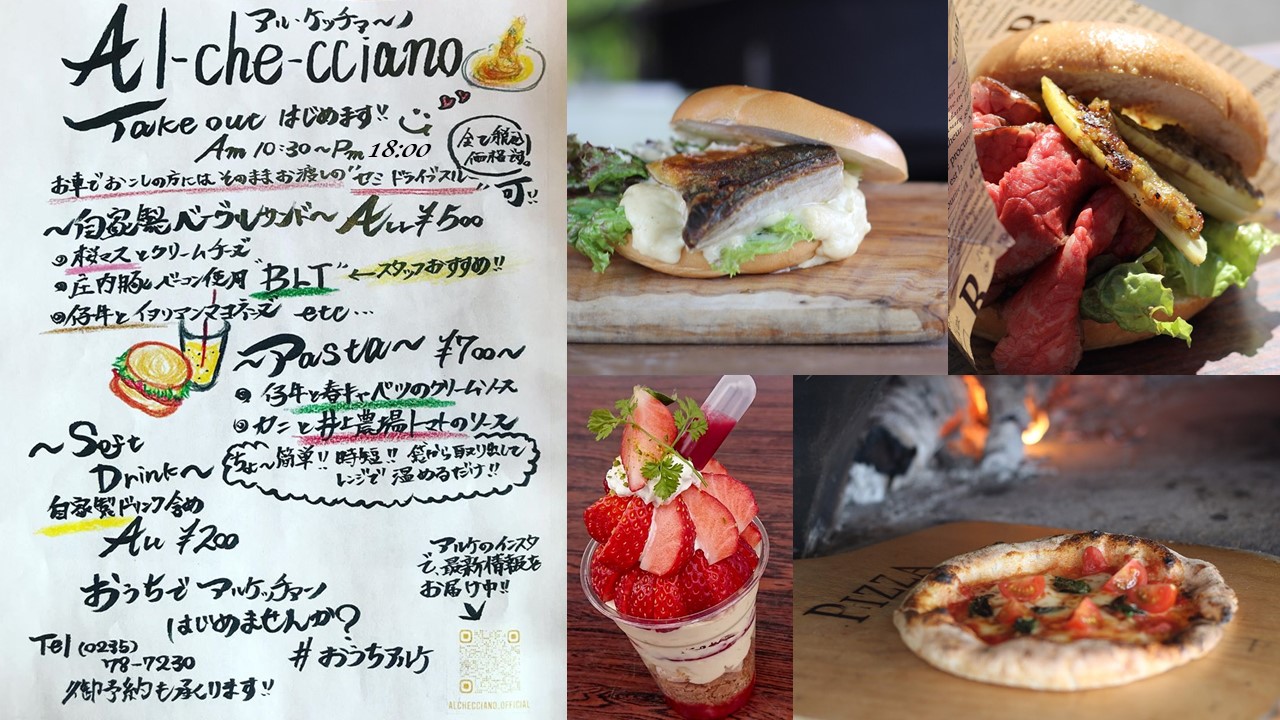 アル・ケッチァーノ
Al-che-cciano
Take out はじめます!!
Am 10:30～Pm 18:00
全て税込
価格です。
お車でおこしの方には そのままお渡しの "セミ ドライブスルー" 可!!
～自家製 ベーグルサンド～ All ¥500
桜マスとクリームチーズ
庄内豚のベーコン使用 "BLT" ←スタッフおすすめ!!
仔牛とイタリアンマヨネーズ etc…
～Pasta～ ¥700～
仔牛と春キャベツのクリームソース
カニと井上農場トマトのソース
ちょ～簡単!! 時短!! 袋から取り出して
レンジで温めるだけ!!
～Soft
Drink～
自家製ドリンク含め
All ¥200
アルケのインスタ
で、最新情報を
お届け中!!
おうちで アルケッチァーノ
はじめませんか?
Tel (0235)
78-7230
# おうちアルケ
御予約も承ります!!
ALCHECCIANO.OFFICIAL
PIZZA